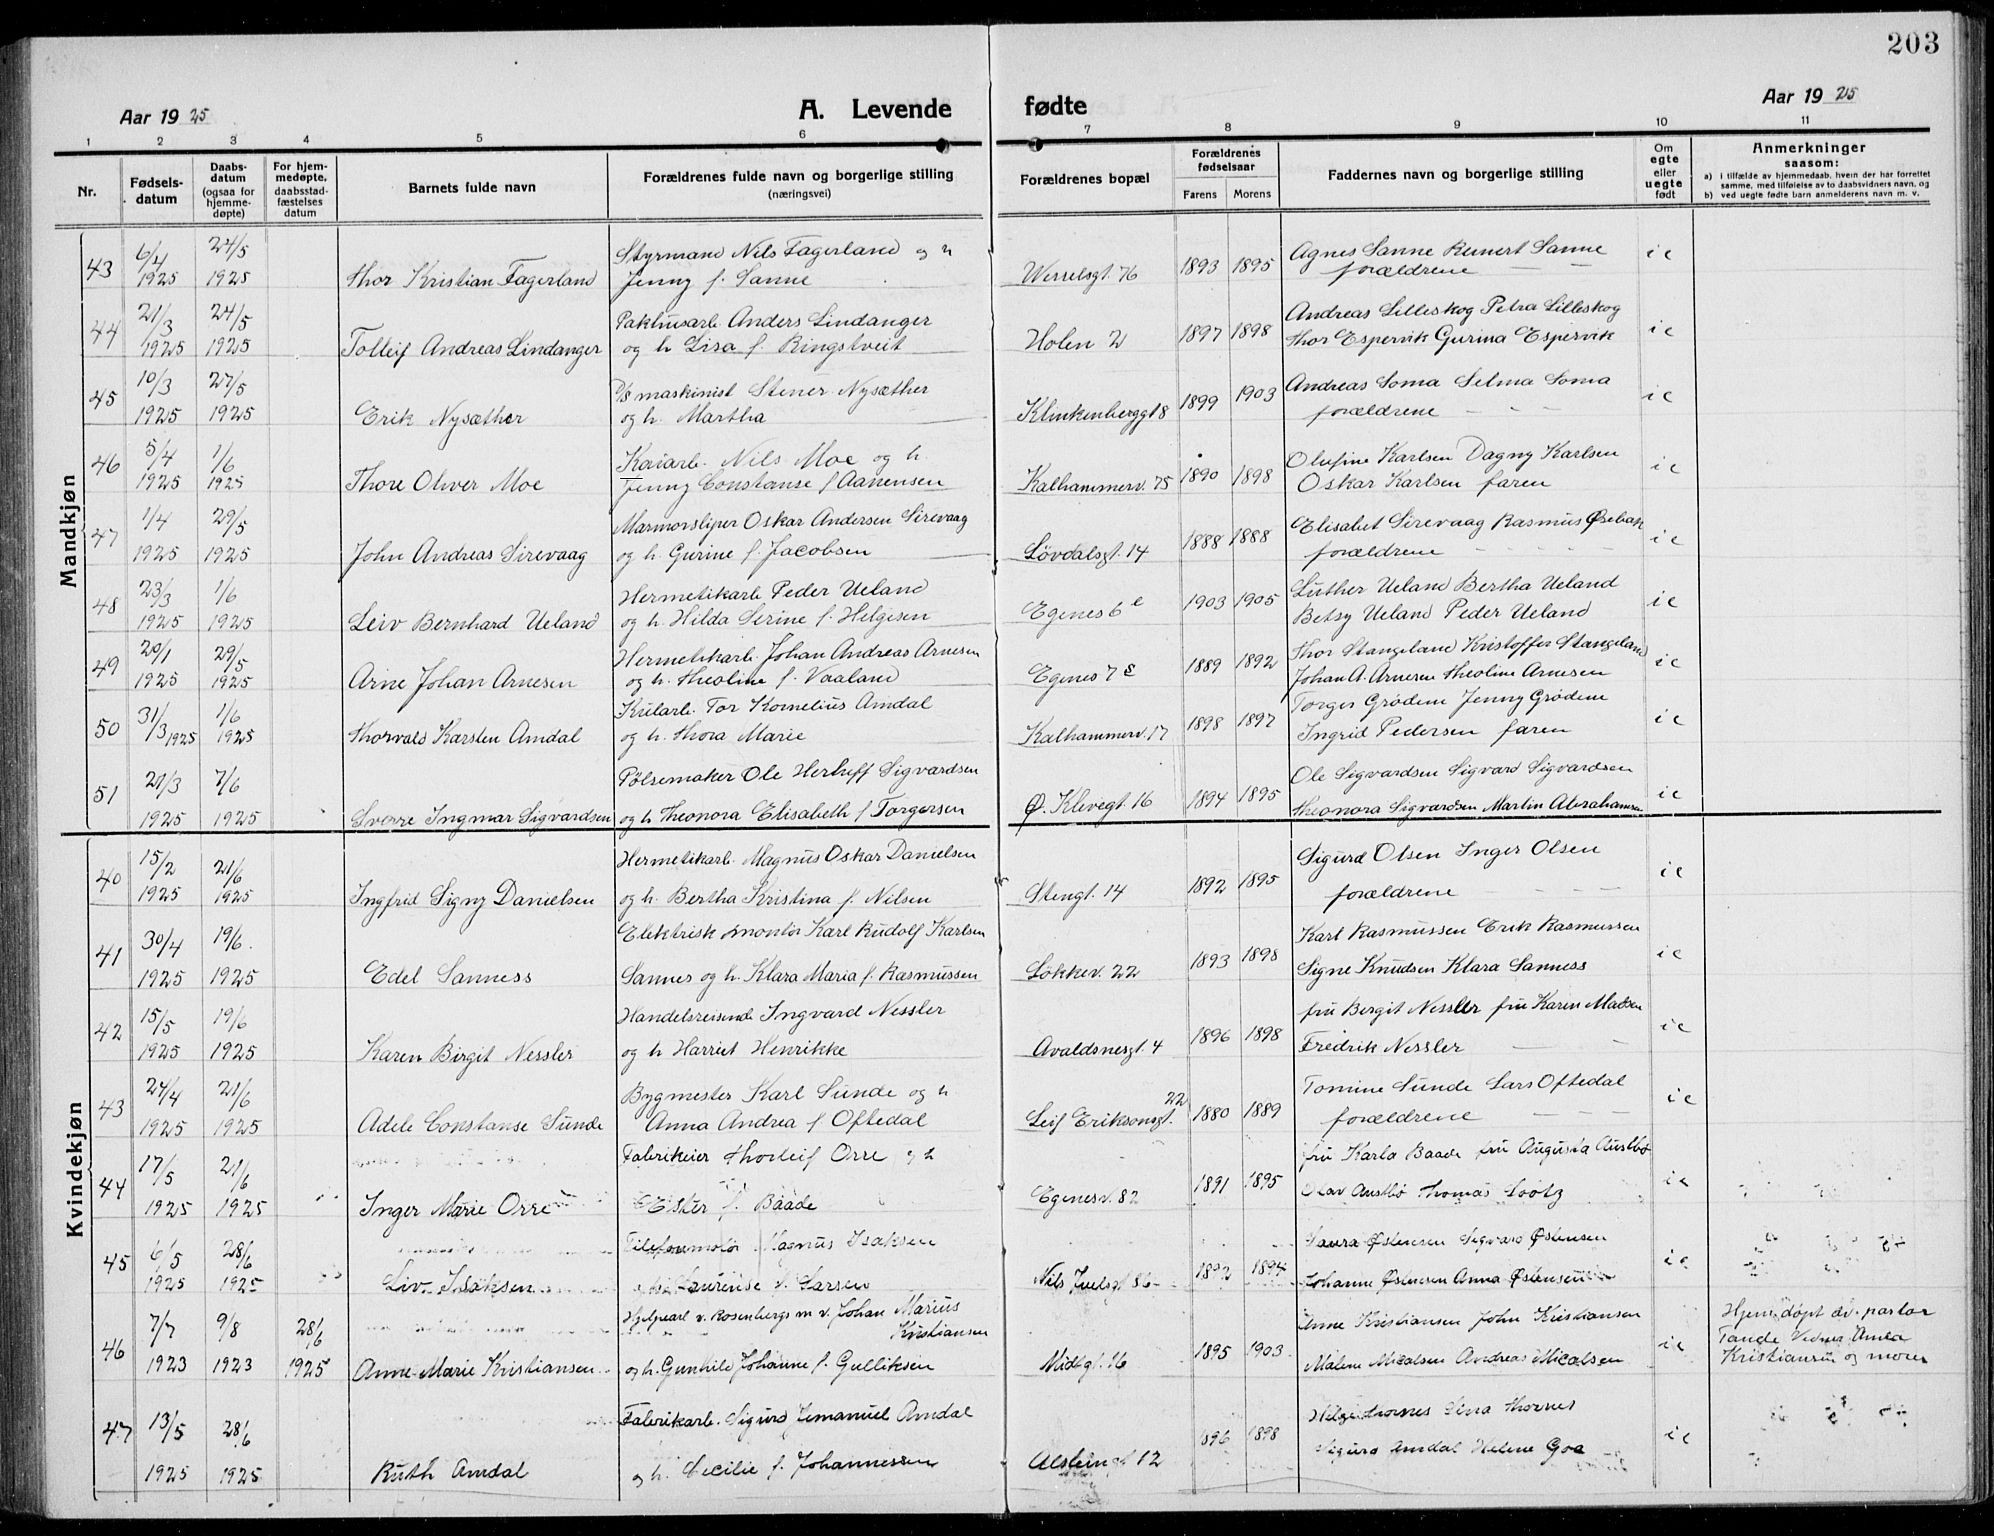 203
Aar 1925
A. Levende fødte
Aar 1925
1 2 3 4 5 6 7 8 9 10 11
Nr.
Fødsels-datum
Daabs-datum (ogsaa for hjemme-døpte)
For hjem-medøpte, daabsstad-fæstelses datum
Barnets fulde navn
Forældrenes fulde navn og borgerlige stilling (næringsvei)
Forældrenes bopæl
Forældrenes fødselsaar
Farens Morens
Faddernes navn og borgerlige stilling
Om egte eller uegte født
Anmerkninger saasom:
a) i tilfælde av hjemmedaab, hvem der har forrettet samme, med tilføielse av to daabsvidners navn, og
b) ved uegte fødte barn anmelderens navn m. v.
Mandkjøn
43 6/4 24/5 Styrmand Nils Fagerland og h Agnes Sanne Reinert Sanne
1925 1925 Thor Kristian Fagerland Jenny f. Sanne Werselsgt. 76 1893 1895 forældrene i e
44 21/3 24/5 Pakhusarb Anders Lindanger Andreas Lilleskog Petra Lilleskog
1925 1925 Tolleif Andreas Lindanger og h Lisa f. Ringstveit Holen 2 1897 1898 Thor Espervik Gurina Espervik i e
45 10/3 27/5 D/s maskinist Stener Nysæther Andreas Soma Selma Soma
1925 1925 Erik Nysæther og h. Martha Klinkenberggt 8 1899 1903 forældrene i e
46 5/4 1/6 Kaiarb. Nils Moe og h. Olufine Karlsen Dagny Karlsen
1925 1925 Thore Oliver Moe Jenny Constanse f Aanensen Kalhammerv. 75 1890 1898 Oskar Karlsen faren i e
47 1/4 29/5 Marmorsliper Oskar Andersen Sirevaag Elisabet Sirevaag Rasmus
1925 1925 John Andreas Sirevaag og h. Gurine f. Jacobsen Løvdalsgt. 14 1888 1888 forældrene i e
48 23/3 1/6 Hermetikarb Peder Ueland Luther Ueland Bertha Ueland
1925 1925 Leiv Bernhard Ueland og h. Hilda Serine f. Helgesen Egenes 6 e 1903 1905 Betsy Ueland Peder Ueland i e
49 20/1 29/5 Hermetikarb. Johan Andreas Arnesen Thor Stangeland Kristoffer Stangeland
1925 1925 Arne Johan Arnesen og h. Theoline f. Vaaland Egenes 7 e 1889 1892 Johan A. Arnesen Theoline Arnesen i e
50 31/3 1/6 Kularb. Tor Kornelius Amdal Torger Grødem Jenny Grødem
1925 1925 Thorvald Karsten Amdal og h. Thora Marie Kalhammerv. 17 1898 1897 Ingrid Pedersen faren i e
51 27/3 7/6 Pølsemaker Ole Herluff Sigvardsen Ole Sigvardsen Sigvard Sigvardsen
1925 1925 Sverre Ingmar Sigvardsen og h Theonora Elisabeth f Torgersen Ø. Klevegt. 16 1894 1895 Theonora Sigvardsen Martin Abrahamsen i e
Kvindekjøn
40 15/2 21/6 Hermetikarb. Magnus Oskar Danielsen Sigurd Olsen Inger Olsen
1925 1925 Ingfrid Signy Danielsen og h. Bertha Kristina f. Nilsen Stengt. 14 1892 1895 forældrene i e
41 30/4 19/6 Elektrisk montør Karl Rudolf Karlsen Karl Rasmussen Erik Rasmussen
1925 1925 Edel Sanness Sannes og h. Klara Maria f. Rasmussen Løkkev. 22 1893 1898 Signe Knudsen Klara Sanness i e
42 15/5 19/6 Handelsreisende Ingvard Nessler fru Birgit Nessler fru Karen Madsen
1925 1925 Karen Birgit Nessler og h Harriet Henrikke Avaldsnesgt. 4 1896 1898 Fredrik Nessler i e
43 24/4 21/6 Bygmester Karl Sunde og h Tomine Sunde Lars Oftedal
1925 1925 Adele Constanse Sunde Anna Andrea f Oftedal Leif Eriksonsgt. 22 1880 1889 forældrene i e
44 17/5 21/6 Fabrikeier Thorleif Orre og h fru Karla Baade fru Augusta Austbø
1925 1925 Inger Marie Orre Ester f. Baade Egenesv. 82 1891 1895 Olav Austbø Thomas Lootz i e
45 6/5 28/6 Magnus Isaksen Laura Østensen Sigvard Østensen
1925 1925 Liv Isaksen Laurense f. Larsen Nils Juelsgt 86 1892 1894 Johanne Østensen Anna Østensen i e
46 7/7 9/8 28/6 Hjelpearb v. Rosenbergs m v. Johan Marius Kristiansen Anne Kristiansen John Kristiansen Hjemdøpt av pastor
1923 1923 1925 Anne Marie Kristiansen og h. Gunhild Johanne f. Gulliksen Midtgt. 16 1895 1903 Malene Micalsen Andreas Micalsen i e Tande Vidner Anna
Kristiansen og moren
47 13/5 28/6 Fabrikarb. Sigurd Emanuel Amdal Helge Thornes Lina Thornes
1925 1925 Ruth Amdal og h. Cecilie f. Johannessen Alsteingt 12 1896 1898 Sigurd Amdal Helene Goa i e